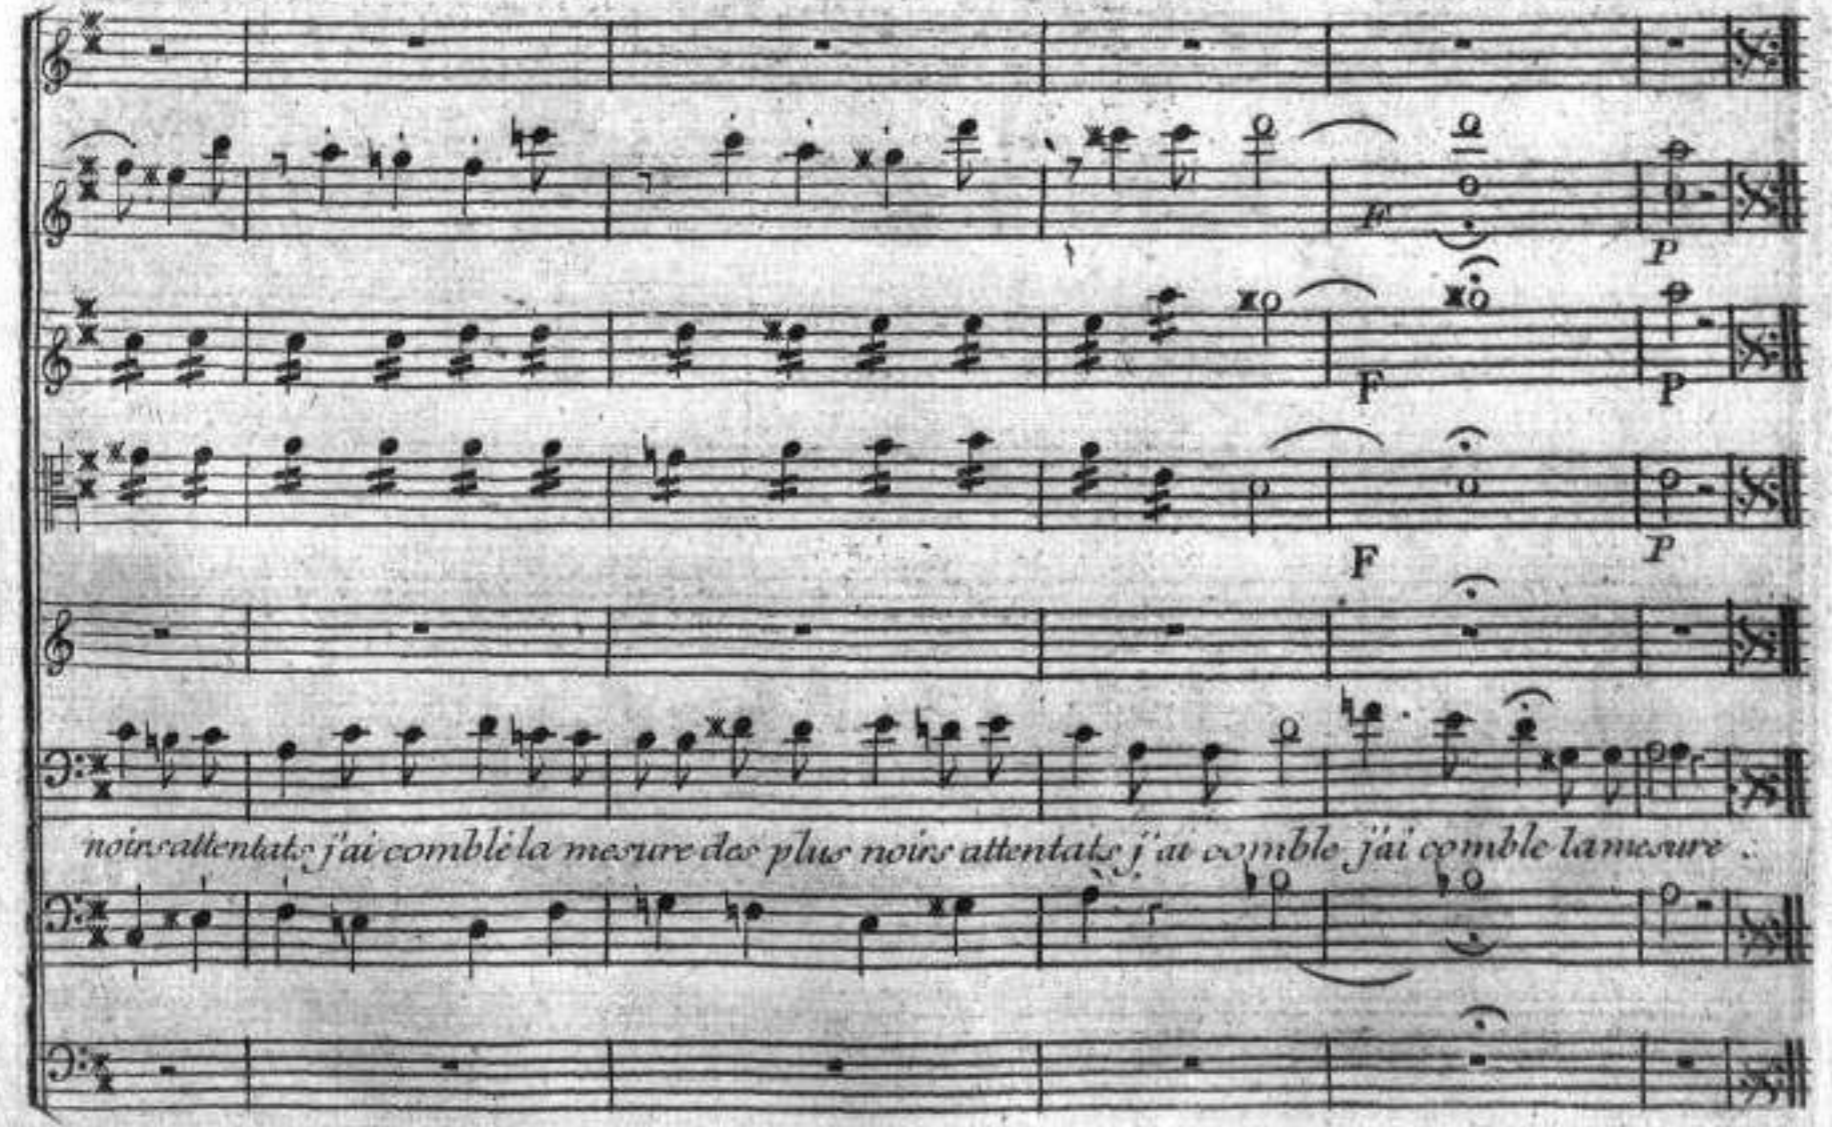 F
P
F
P
F
P
noirs attentats j'ai comblé la mesure des plus noirs attentats j'ai comble j'ai comble la mesure.